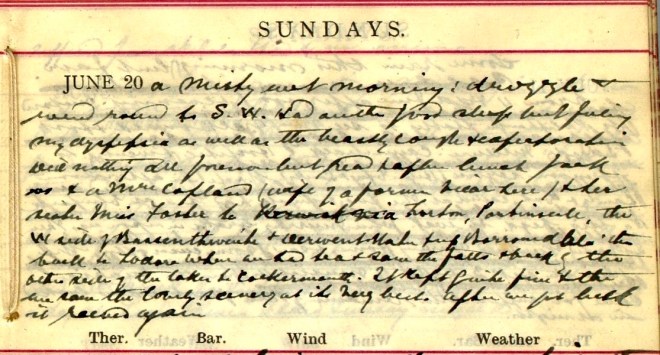 SUNDAYS.
JUNE 20 a misty wet morning: drizzle &
wind round to S.W. Had another good sleep but feeling
my dyspepsia as well as the beastly cough & expectoration
did nothing all forenoon but read & after lunch Jack
& a Mrs Copland (wife of a former here) & her
sister Miss Foster to Keswick via Lorton, Portinscale, the
W side of Bassenthwaite & Derwentwater & up Borrowdale the
back to Lodore where we had tea & saw the falls & back by the
other side of the lake to Cockermouth. It kept quite fine & the
we saw the lovely scenery at its very best. After we got back
it rained again
Ther. Bar. Wind Weather